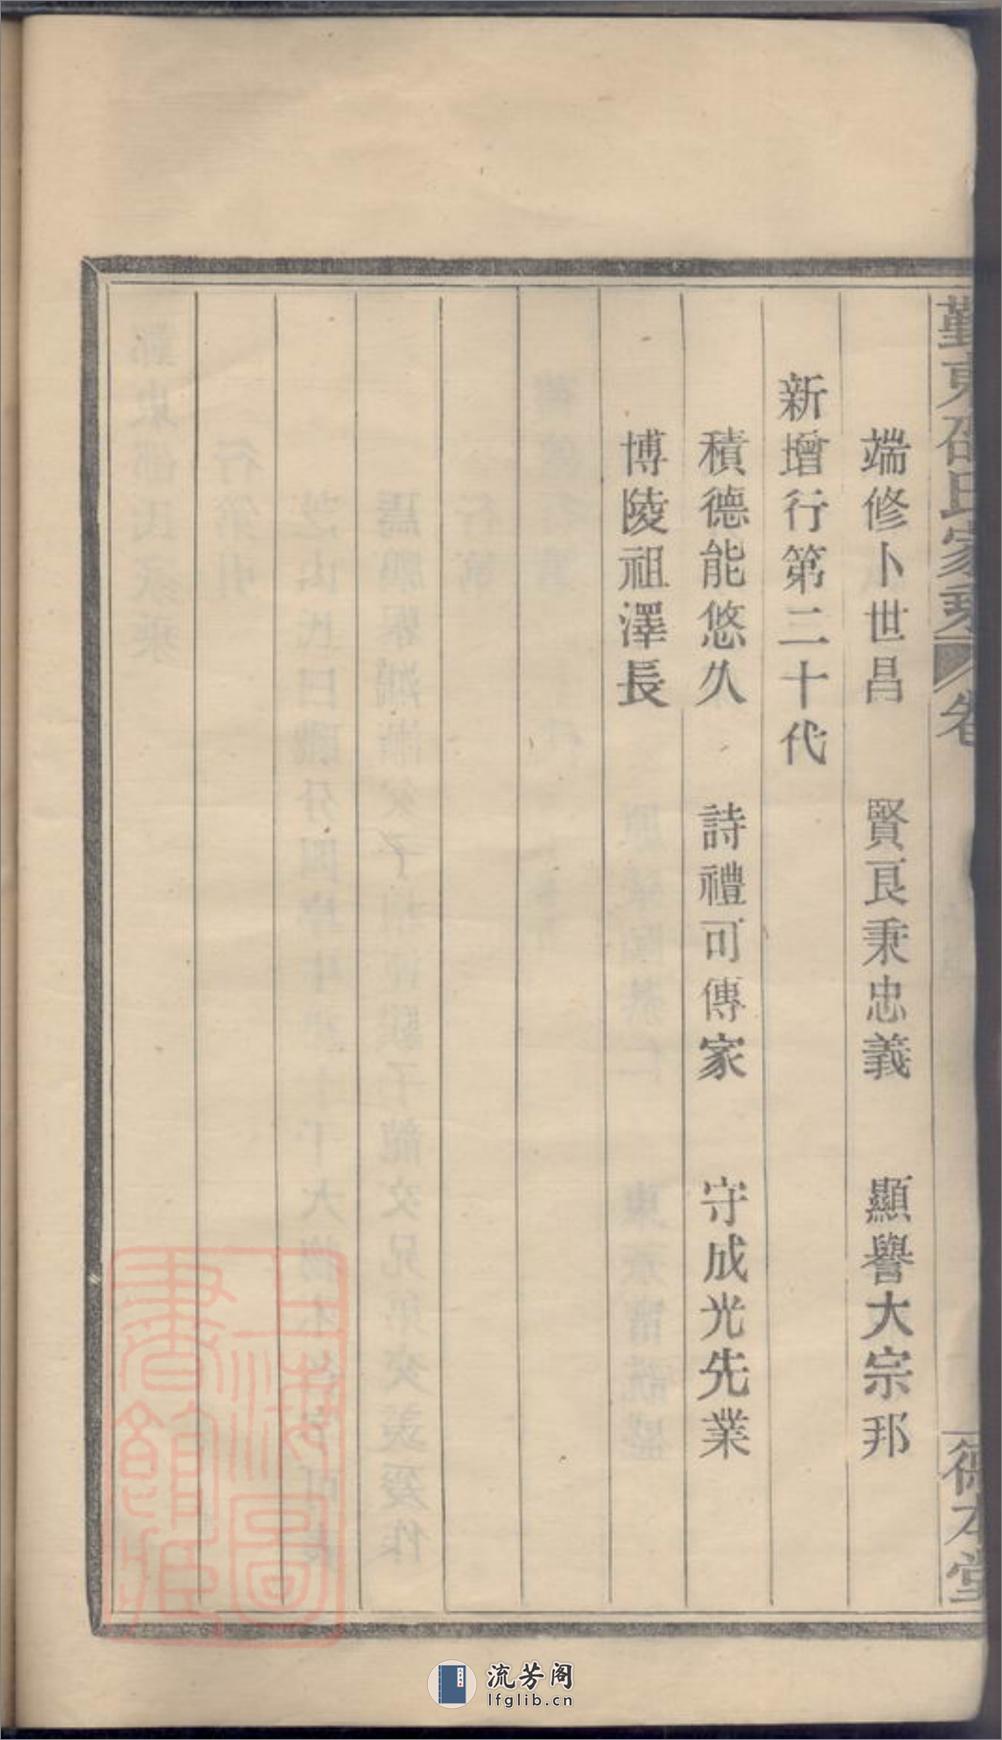 鄞東邵氏家乘 卷 德本堂
端修卜世昌 賢良秉忠義 顯譽大宗邦
新增行第二十代
積德能悠久 詩禮可傳家 守成光先業
博陵祖澤長
上海圖書館藏
流芳阁
lfglib.cn